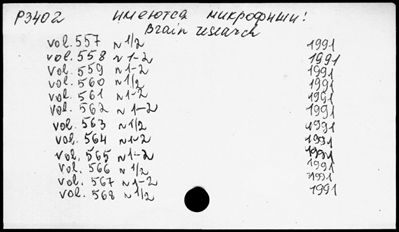 P3402 имеются микрофиши!
Brain research
vol. 557 N 1/2 1991
vol. 558 N 1-2 1991
vol. 559 N 1-2 1991
vol. 560 N 1/2 1991
vol. 561 N 1-2 1991
vol. 562 N 1-2 1991
vol. 563 N 1/2 1991
vol. 564 N 1-2 1991
vol. 565 N 1-2 1991
vol. 566 N 1/2 1991
vol. 567 N 1-2 1991
vol. 568 N 1/2 1991